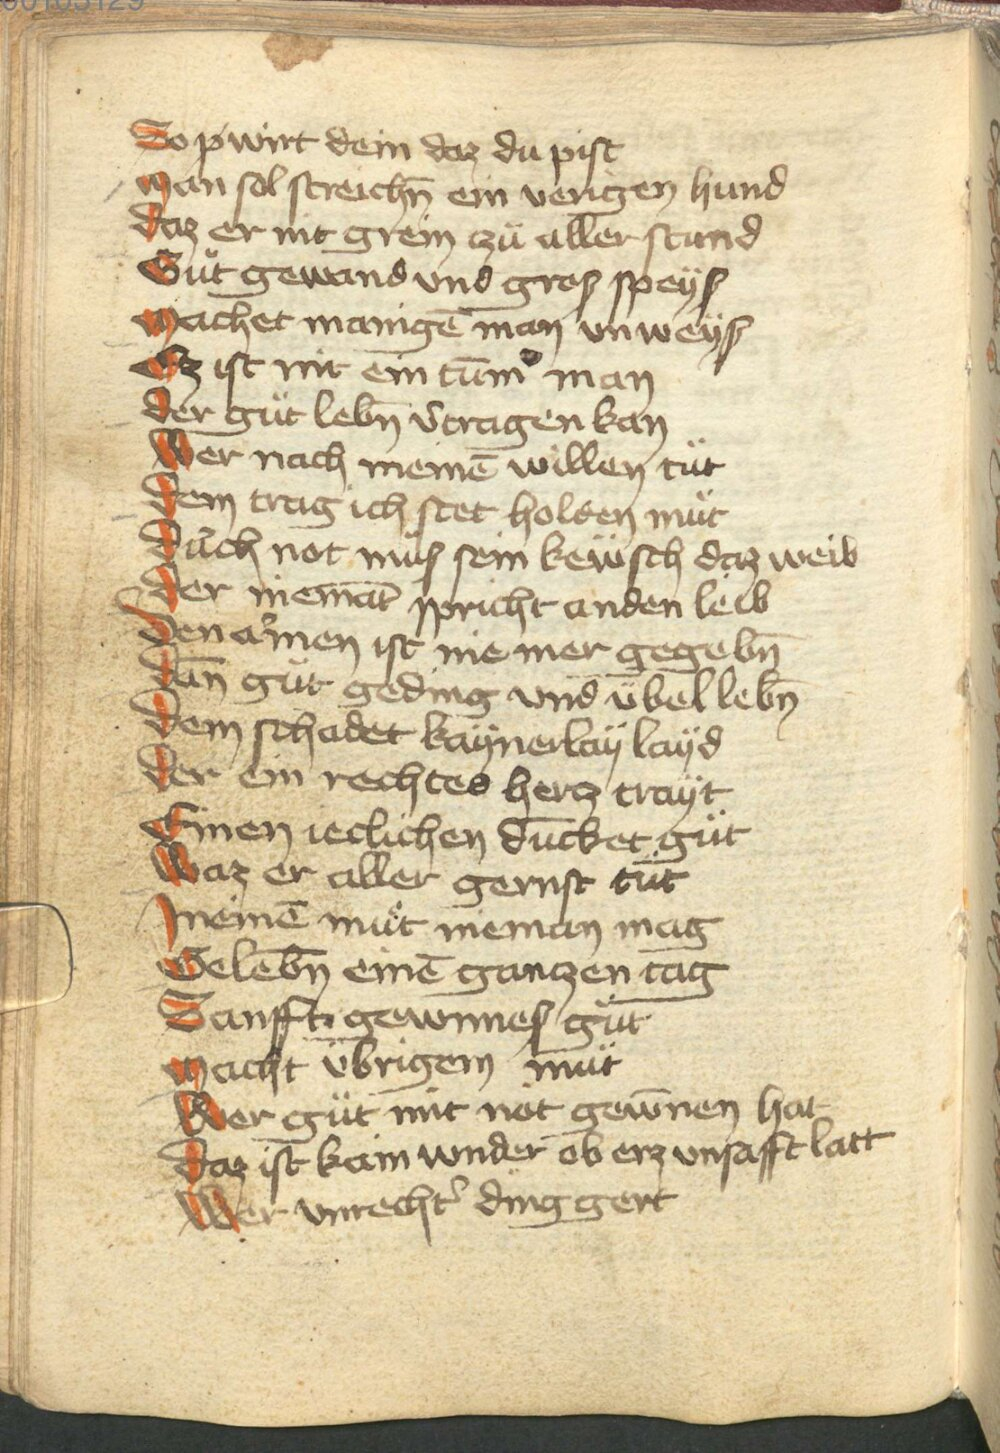 00105129
So pwirt dein daz du pist
Man sol streichn̄ ein verigen hund
daz er nit grein czü aller stund
Güt gewand vnd gros speÿs
Machet manigē man vnweÿs
Ez ist nit ein tūm̄ man
der güt lebn̄ v̄tragen kan
Wer nach meinē willen tüt
dem trag ich stet holden müt
Durch not müs sein kewsch daz weib
der niemāt spricht an den leib
Den armen ist nie mer gegebn̄
dān güt geding vnd übel lebn̄
dem schadet kaÿnerlaÿ laÿd
der ein rechtes hercz traÿt
Einen ieclichen duncket güt
Waz er aller gernst tüt
In meinē müt nieman mag
Gelebn̄ einē ganczen tag
Sanfft gewinnes güt
Macht übrigem müt
Wer güt mit not gewn̄nen hat
Daz ist kain wnder ob erz vnsafft latt
Wer vnrecht' ding gert